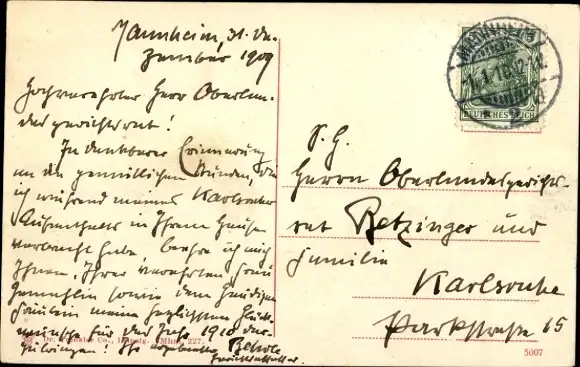 Mannheim, 31. De-
zember 1909
Hochverehrter Herr Oberlan-
desgerichtsrat!
In dankbarer Erinnerung
an die gemütlichen Stunden, die
ich während meines Karlsruher
Aufenthalts in Ihrem Hause
verbracht habe, beehre ich mich
Ihnen, Ihrer verehrten Frau
Gemahlin sowie dem Fräulein
meine herzlichsten Glück-
wünsche für das Jahr 1910 dar-
zubringen! Ihr ergebenster
MANNHEIM
1.1.10.
DEUTSCHES REICH
S. H.
Herrn Oberlandesgerichts-
rat Retzinger und
Familie
Karlsruhe
Parkstraße 15
Co., Leipzig. 227.
5007